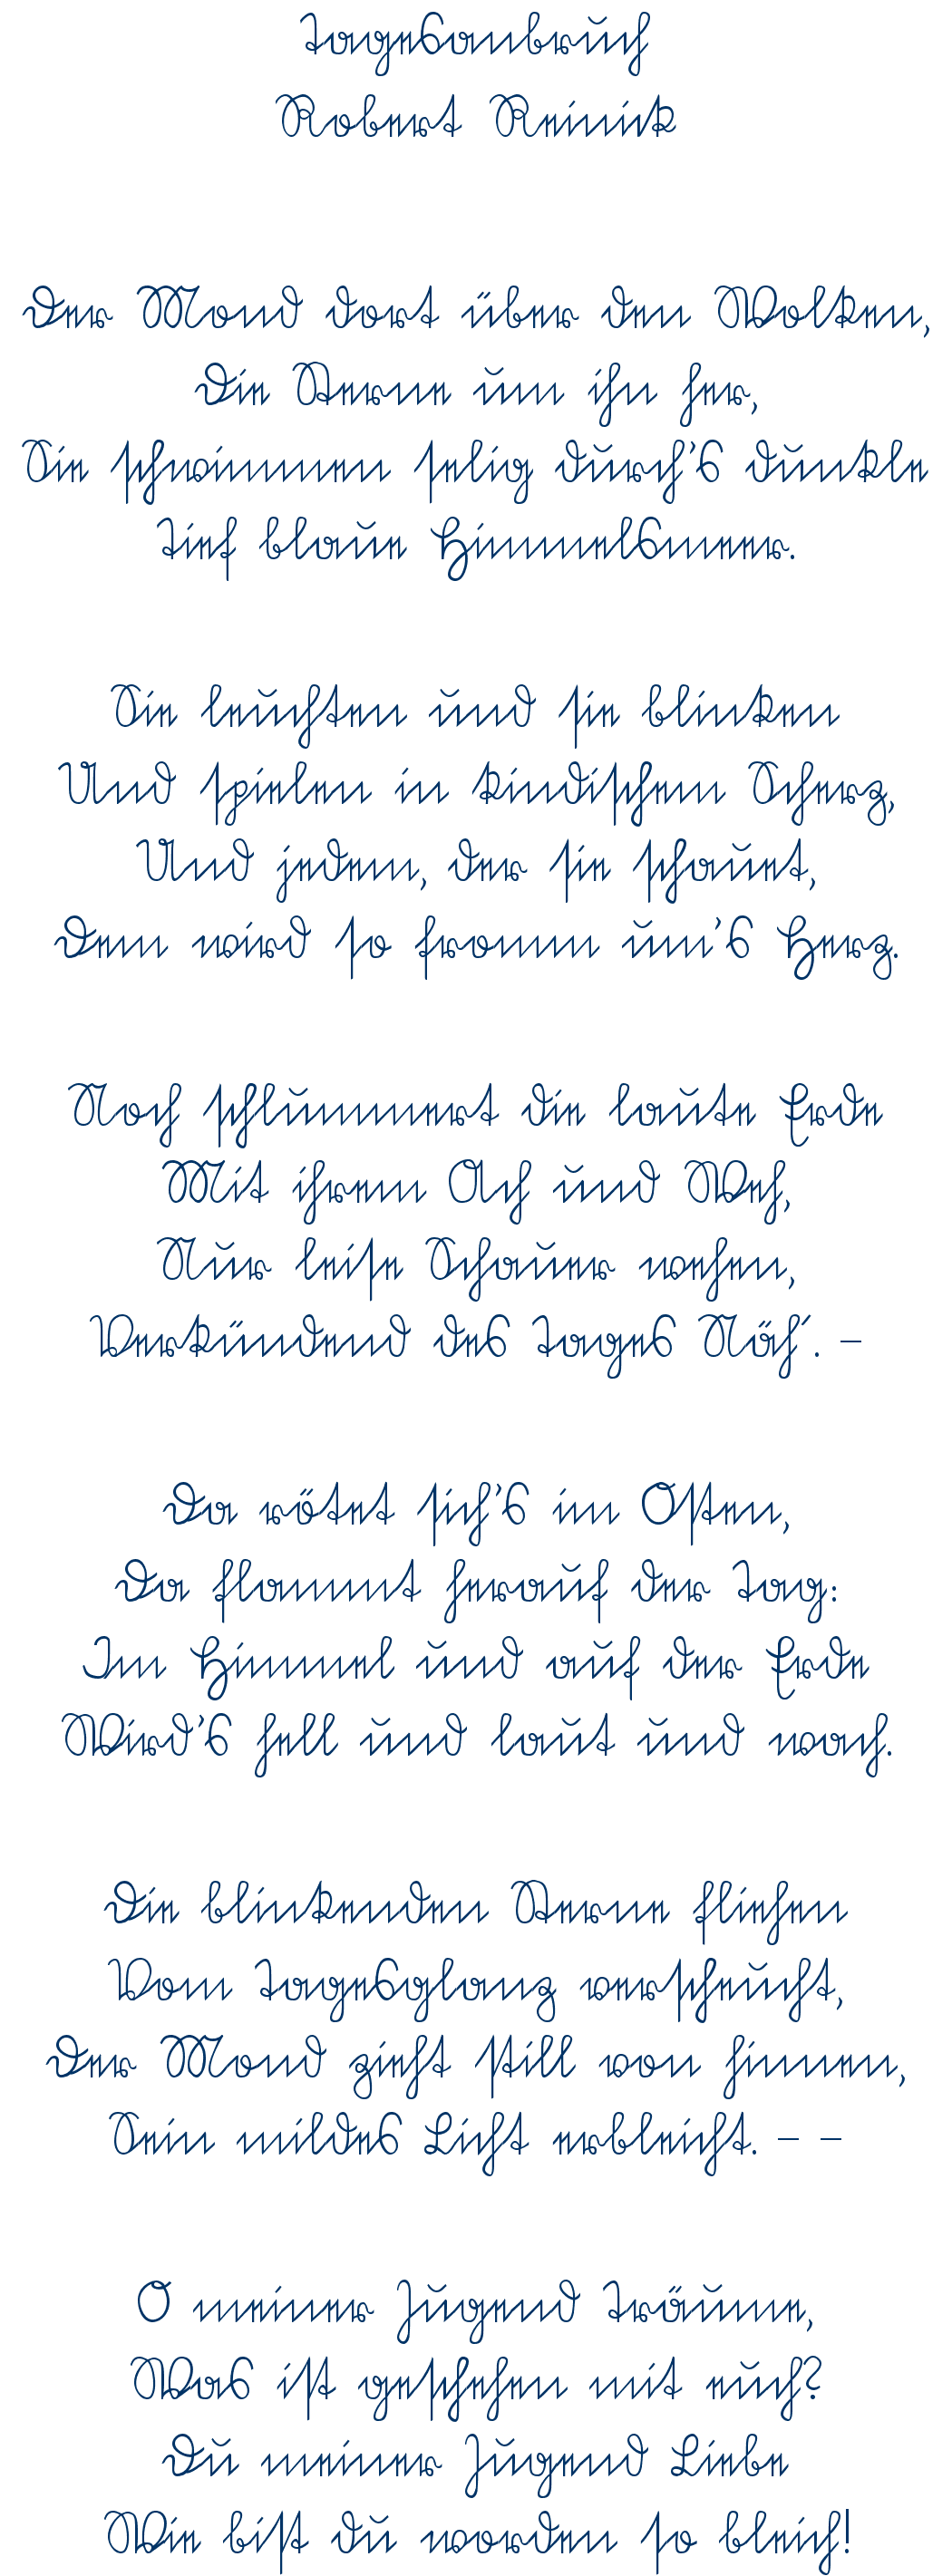 Tagesanbruch
Robert Reinick
Der Mond dort über den Wolken,
Die Sterne um ihn her,
Sie schwimmen selig durch's dunkle
Tief blaue Himmelsmeer.
Sie leuchten und sie blinken
Und spielen in kindischem Scherz,
Und jedem, der sie schauet,
Dem wird so fromm um's Herz.
Noch schlummert die laute Erde
Mit ihrem Ach und Weh,
Nur leise Schauer wehen,
Verkündend des Tages Näh´. –
Da rötet sich's im Osten,
Da flammt herauf der Tag:
Im Himmel und auf der Erde
Wird's hell und laut und wach.
Die blinkenden Sterne fliehen
Vom Tagesglanz verscheucht,
Der Mond zieht still von hinnen,
Sein mildes Licht erbleicht. – –
O meiner Jugend Träume,
Was ist geschehen mit euch?
Du meiner Jugend Liebe
Wie bist du worden so bleich!